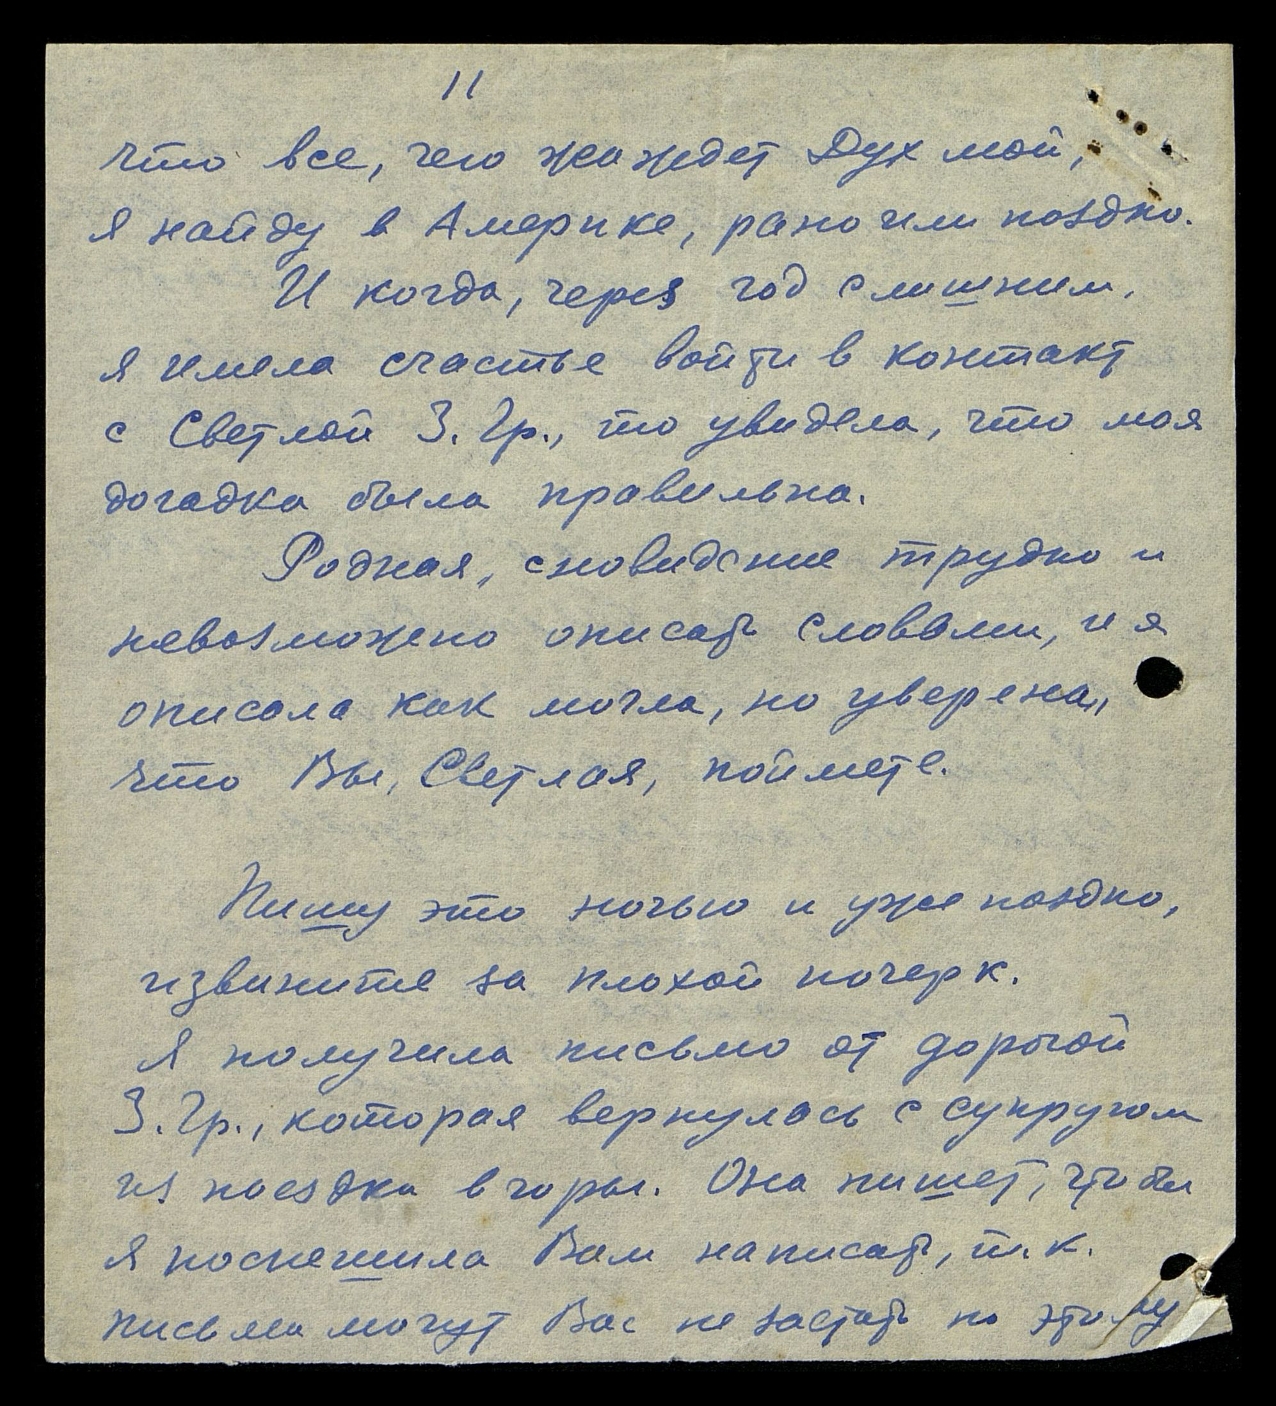 11
что все, чего жаждет Дух мой,
я найду в Америке, рано или поздно.
И когда, через год слишним,
я имела счастье войти в контакт
с Светлой З. Гр., то увидела, что моя
догадка была правильна.
Родная, сновидение трудно и
невозможено описать словами, и я
описала как могла, но уверена,
что Вы, Светлая, поймете.
Пишу это ночью и уже поздно,
извините за плохой почерк.
Я получила письмо от дорогой
З. Гр., которая вернулась с супругом
из поездки в горы. Она пишет, чтобы
я поспешила Вам написать, т. к.
письма могут Вас не застать по этому